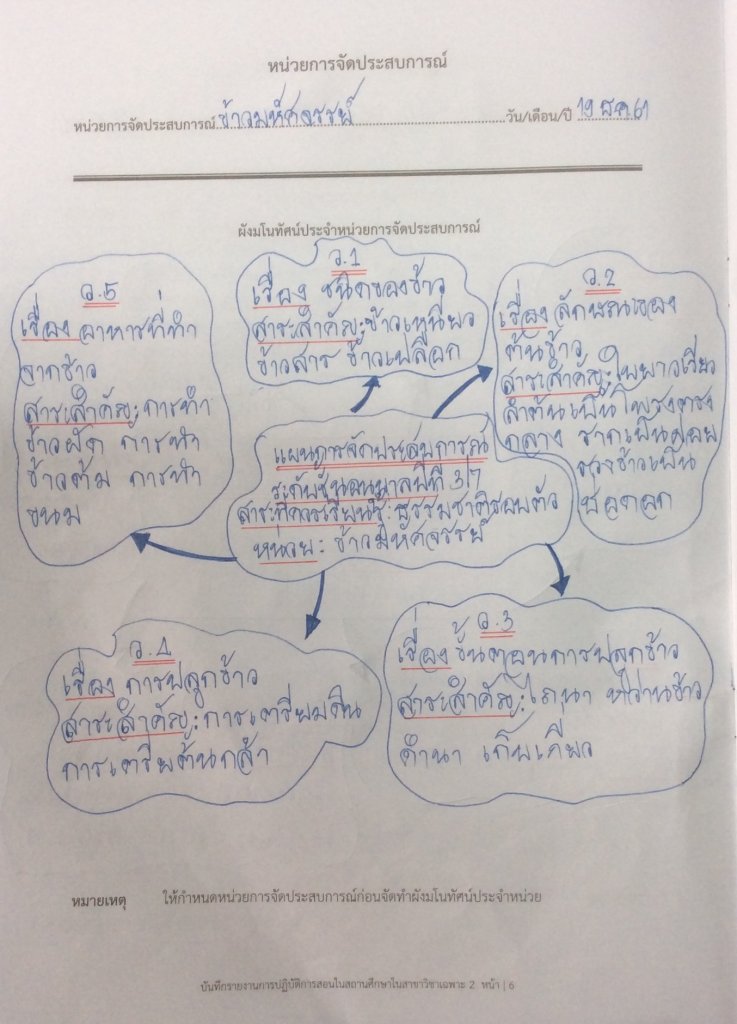 หน่วยการจัดประสบการณ์
หน่วยการจัดประสบการณ์ ข้าวมหัศจรรย์ วัน/เดือน/ปี 19 ส.ค. 61
ผังมโนทัศน์ประจำหน่วยการจัดประสบการณ์
ว.1
เรื่อง ชนิดของข้าว
สาระสำคัญ: ข้าวเหนียว
ข้าวสาร ข้าวเปลือก
ว.2
เรื่อง ลักษณะของ
ต้นข้าว
สาระสำคัญ: ใบยาวเรียว
ลำต้นเป็นโพรงตรง
กลาง รากเป็นฝอย
รวงข้าวเป็น
ช่อดอก
ว.5
เรื่อง อาหารที่ทำ
จากข้าว
สาระสำคัญ: การทำ
ข้าวผัด การทำ
ข้าวต้ม การทำ
ขนม
แผนการจัดประสบการณ์
ระดับชั้นอนุบาลปีที่ 3/7
สาระที่ควรเรียนรู้: ธรรมชาติรอบตัว
หน่วย: ข้าวมหัศจรรย์
ว.3
เรื่อง ขั้นตอนการปลูกข้าว
สาระสำคัญ: ไถนา หว่านข้าว
ดำนา เก็บเกี่ยว
ว.4
เรื่อง การปลูกข้าว
สาระสำคัญ: การเตรียมดิน
การเตรียมต้นกล้า
หมายเหตุ ให้กำหนดหน่วยการจัดประสบการณ์ก่อนจัดทำผังมโนทัศน์ประจำหน่วย
บันทึกรายงานการปฏิบัติการสอนในสถานศึกษาในสาขาวิชาเฉพาะ 2 หน้า | 6